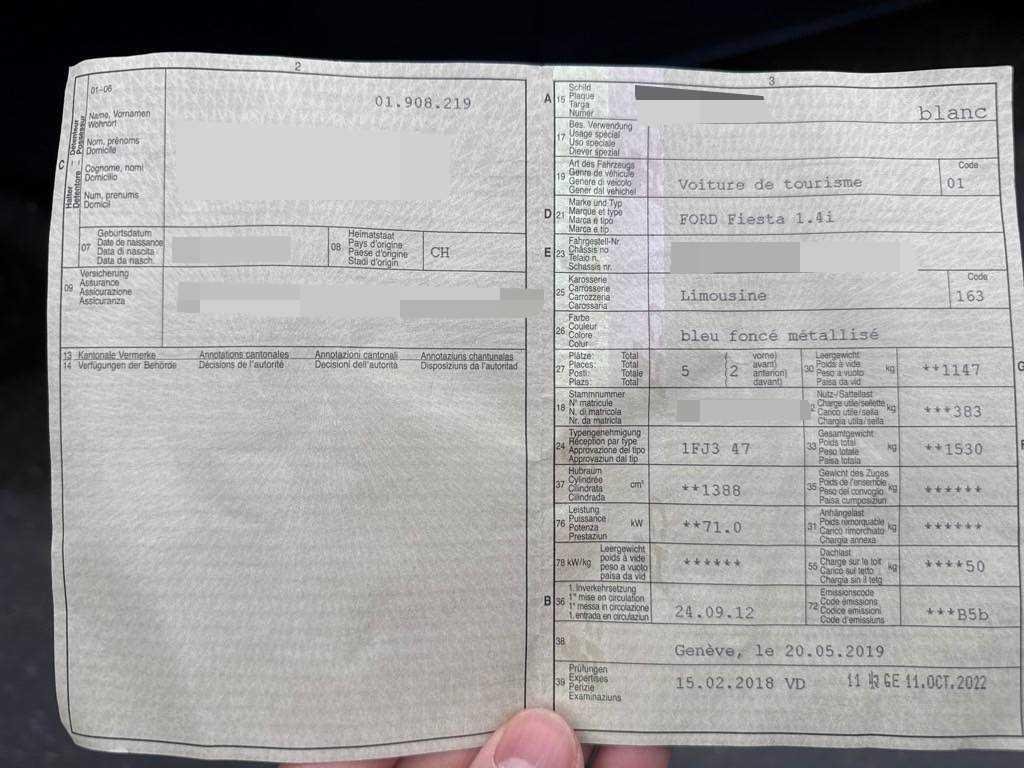 2
01-06
01.908.219
C
Halter Détenteur
Detentore Possessur
Name, Vornamen
Wohnort
Nom, prénoms
Domicile
Cognome, nomi
Domicilio
Num, prenums
Domicil
07
Geburtsdatum
Date de naissance
Data di nascita
Data da nasch.
08
Heimatstaat
Pays d'origine
Paese d'origine
Stadi d'origin
CH
09
Versicherung
Assurance
Assicurazione
Assicuranza
13 Kantonale Vermerke Annotations cantonales Annotazioni cantonali Annotaziuns chantunalas
14 Verfügungen der Behörde Décisions de l'autorité Decisioni dell'autorità Disposiziuns da l'autoritad
3
A 15
Schild
Plaque
Targa
Numer
blanc
17
Bes. Verwendung
Usage spécial
Uso speciale
Diever spezial
19
Art des Fahrzeugs
Genre de véhicule
Genere di veicolo
Gener dal vehichel
Voiture de tourisme
Code
01
D 21
Marke und Typ
Marque et type
Marca e tipo
Marca e tip
FORD Fiesta 1.4i
E 23
Fahrgestell-Nr.
Châssis no
Telaio n.
Schassis nr.
25
Karosserie
Carrosserie
Carrozzeria
Carossaria
Limousine
Code
163
26
Farbe
Couleur
Colore
Colur
bleu foncé métallisé
27
Plätze: Total
Places: Total
Posti: Totale
Plazs: Total
5
2
vorne)
avant)
anteriori)
davant)
30
Leergewicht
Poids à vide
Peso a vuoto
Paisa da vid
kg
**1147
G
18
Stammnummer
N° matricule
N. di matricola
Nr. da matricla
Nutz-/Sattellast
Charge utile/sellette
Carico utile/sella
Chargia utila/sella
kg
***383
24
Typengenehmigung
Réception par type
Approvazione del tipo
Approvaziun dal tip
1FJ3 47
33
Gesamtgewicht
Poids total
Peso totale
Paisa totala
kg
**1530
37
Hubraum
Cylindrée
Cilindrata
Cilindrada
cm³
**1388
35
Gewicht des Zuges
Poids de l'ensemble
Peso del convoglio
Paisa cumposiziun
kg
******
76
Leistung
Puissance
Potenza
Prestaziun
kW
**71.0
31
Anhängelast
Poids remorquable
Carico rimorchiato
Chargia annexa
kg
******
78 kW/kg
Leergewicht
poids à vide
peso a vuoto
paisa da vid
******
55
Dachlast
Charge sur le toit
Carico sul tetto
Chargia sin il tetg
kg
****50
B 36
1. Inverkehrsetzung
1re mise en circulation
1a messa in circolazione
1. entrada en circulaziun
24.09.12
72
Emissionscode
Code émissions
Codice emissioni
Code d'emissiuns
***B5b
38
Genève, le 20.05.2019
39
Prüfungen
Expertises
Perizie
Examinaziuns
15.02.2018 VD
GE 11.OCT.2022